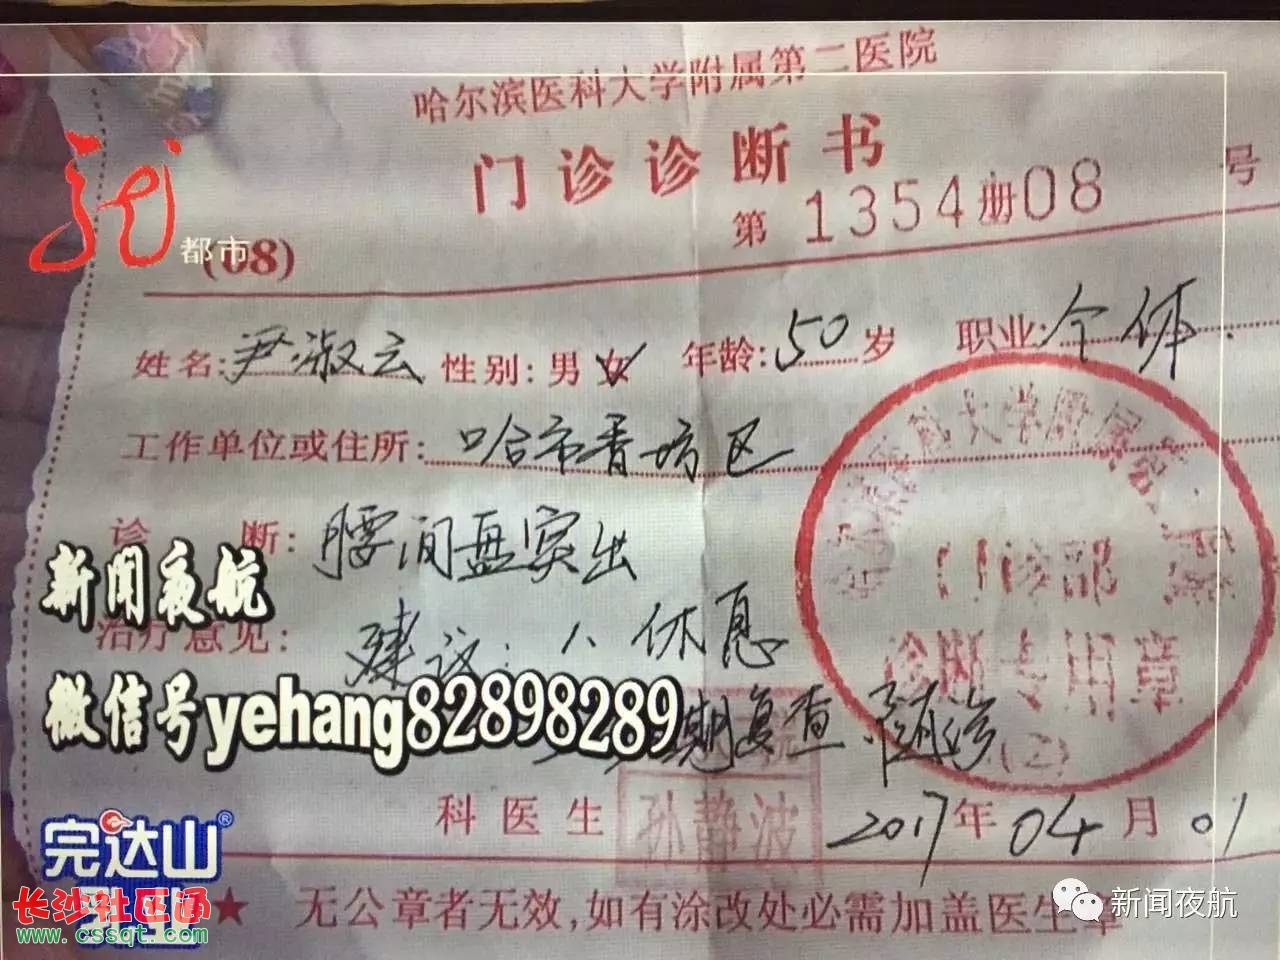 哈尔滨医科大学附属第二医院
门诊诊断书
第1354册08号
都市
(08)
姓名:尹淑云 性别:男女 年龄:50岁 职业:个体
工作单位或住所:哈市香坊区
诊断:腰间盘突出
新闻夜航
治疗意见:建议:1、休息
微信号yehang82898289
期复查 随诊
门诊部
诊断专用章
(2)
科医生 孙静波 2017年04月01
完达山®
乳业
长沙社区通
www.cssqt.com
★ 无公章者无效,如有涂改处必需加盖医生章
新闻夜航